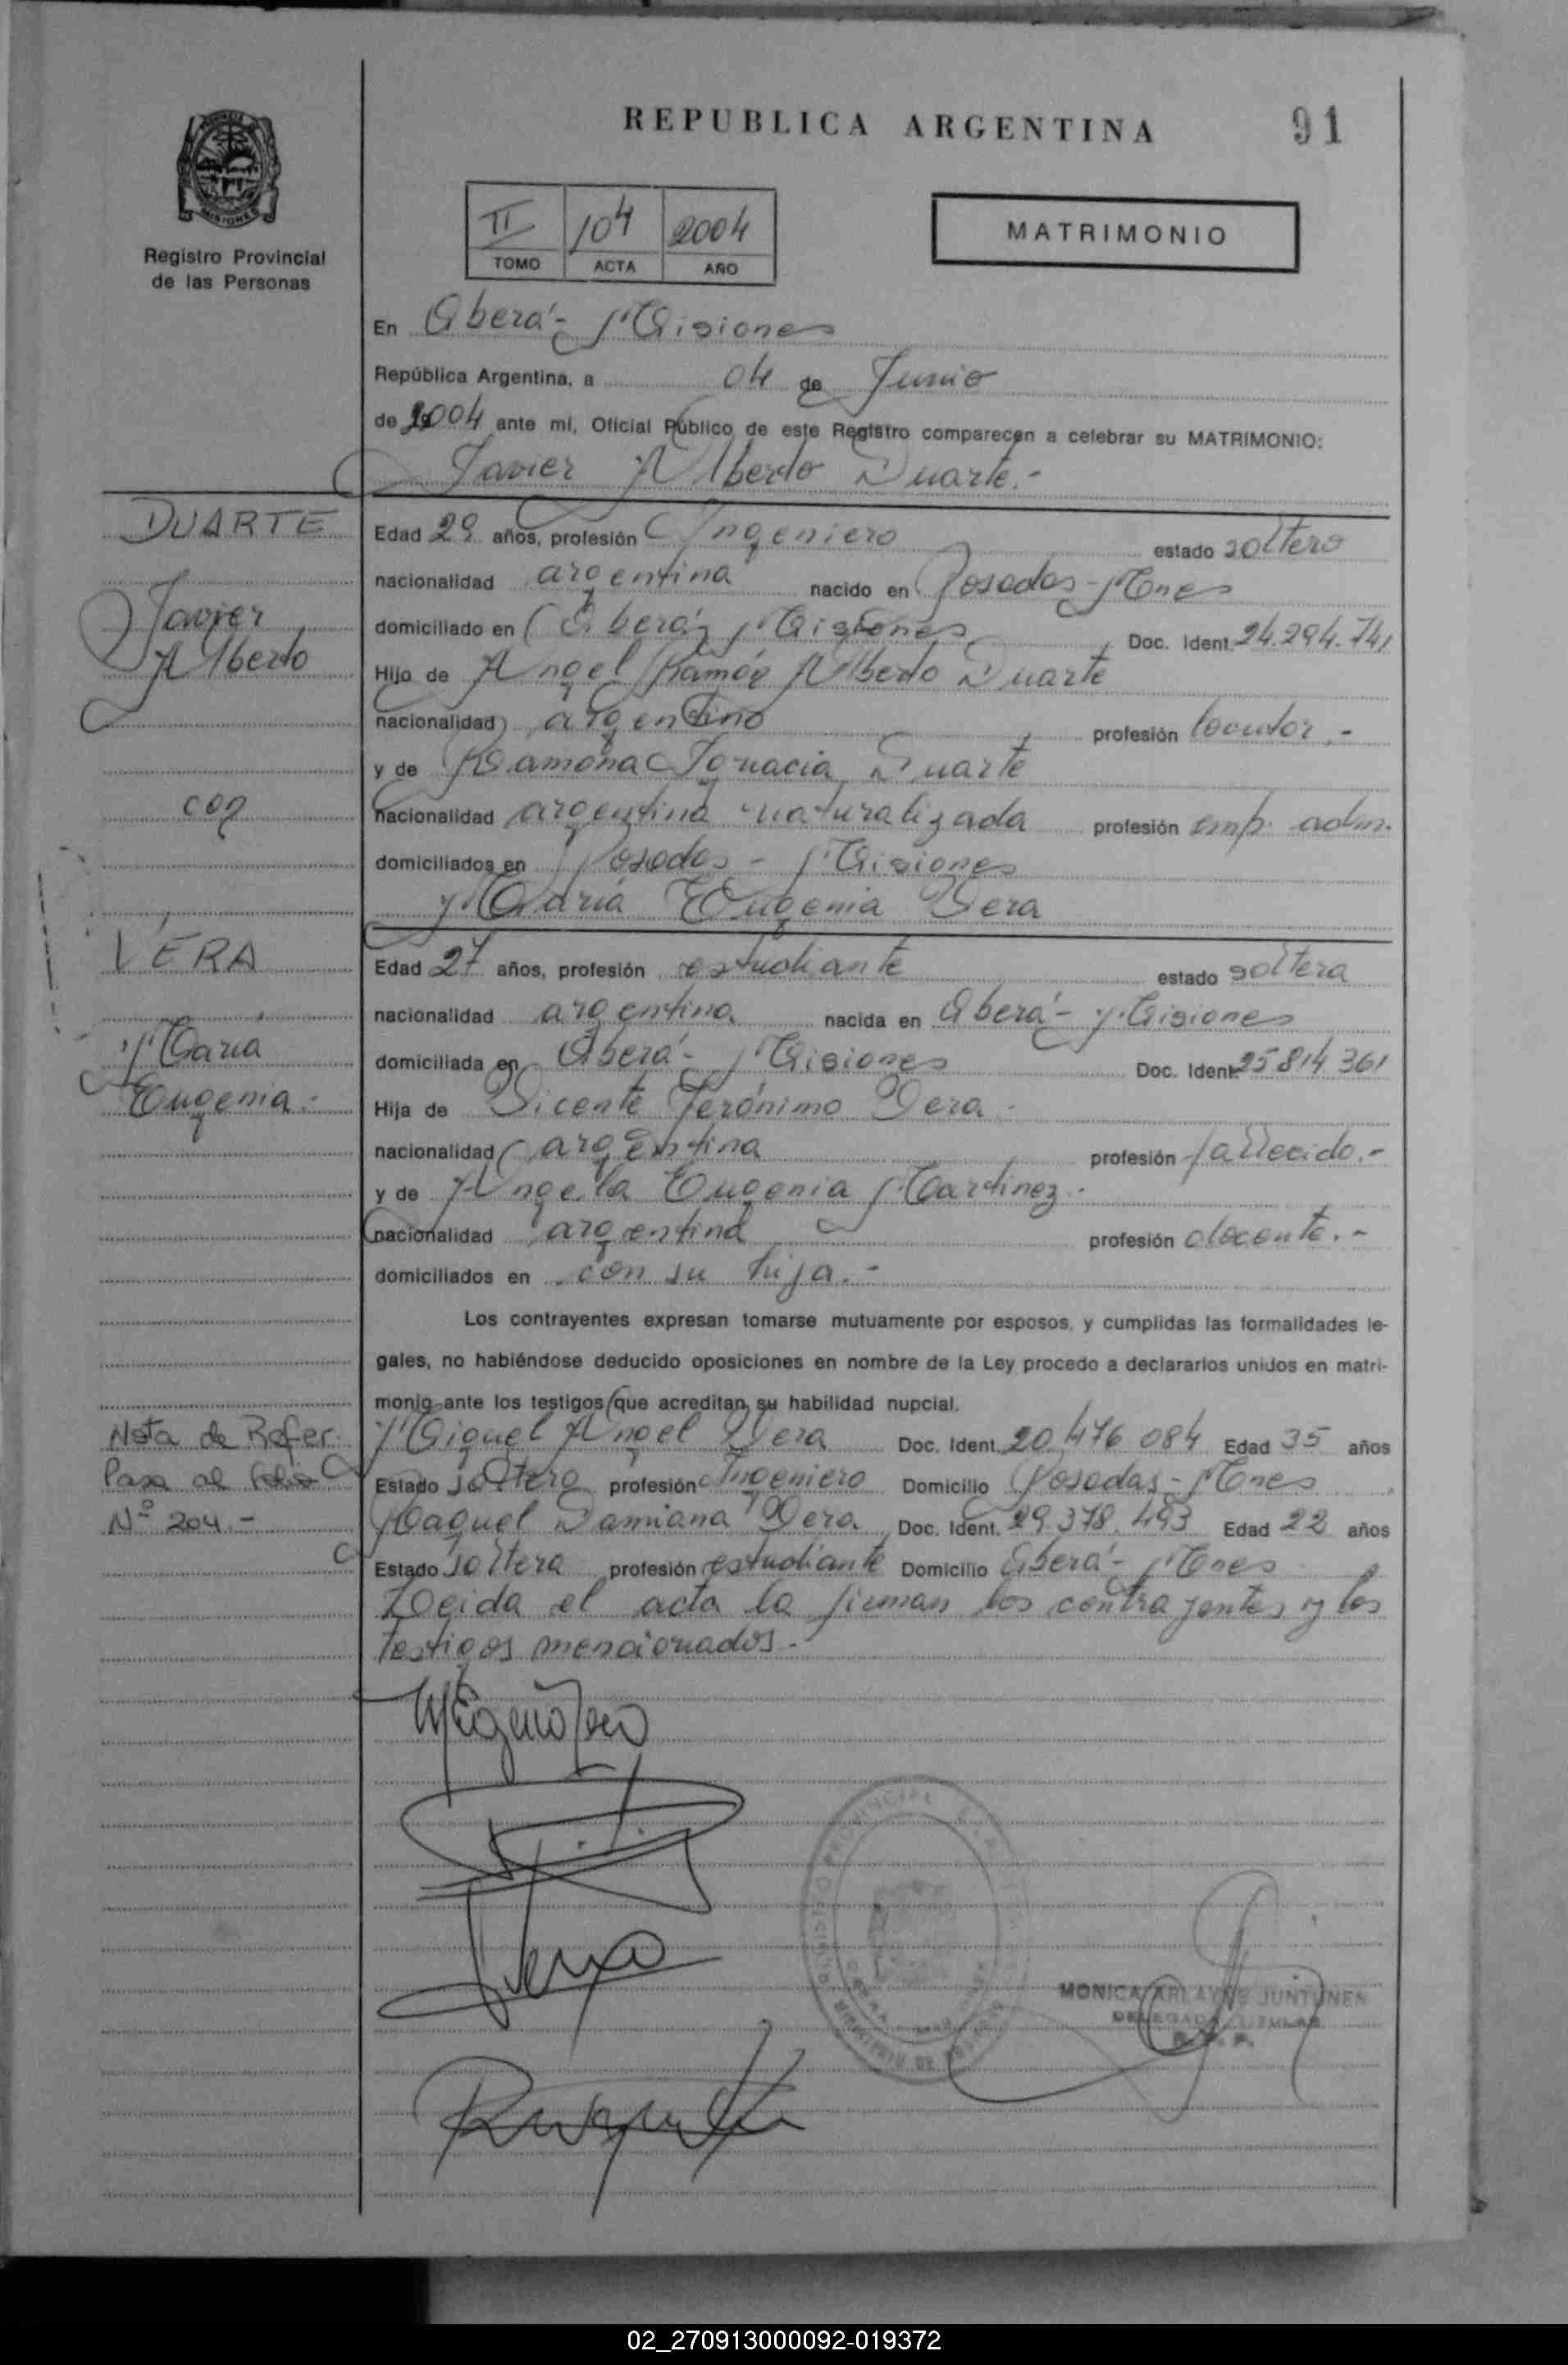 REPUBLICA ARGENTINA
91
MISIONES
Registro Provincial
de las Personas
II 104 2004
TOMO ACTA AÑO
MATRIMONIO
En Oberá - Misiones
República Argentina, a 04 de Junio
de 2004 ante mí, Oficial Público de este Registro comparecen a celebrar su MATRIMONIO:
Javier Alberto Duarte.-
DUARTE
Javier
Alberto
con
VERA
María
Eugenia.-
Nota de Refer.
Pasa al folio
Nº 204.-
Edad 29 años, profesión Ingeniero estado soltero
nacionalidad argentina nacido en Posadas - Mnes
domiciliado en Oberá, Misiones Doc. Ident. 24.294.741
Hijo de Angel Ramón Alberto Duarte
nacionalidad argentino profesión locutor.-
y de Ramona Ignacia Duarte
nacionalidad argentina naturalizada profesión emp. adm.
domiciliados en Posadas - Misiones
y María Eugenia Vera
Edad 27 años, profesión estudiante estado soltera
nacionalidad argentina nacida en Oberá - Misiones
domiciliada en Oberá - Misiones Doc. Ident. 25 814 361
Hija de Vicente Jerónimo Vera -
nacionalidad argentina profesión fallecido.-
y de Angela Eugenia Martinez.
nacionalidad argentina profesión docente.-
domiciliados en con su hija.-
Los contrayentes expresan tomarse mutuamente por esposos, y cumplidas las formalidades le-
gales, no habiéndose deducido oposiciones en nombre de la Ley procedo a declararlos unidos en matri-
monio ante los testigos que acreditan su habilidad nupcial.
Miguel Angel Vera Doc. Ident. 20.476 084 Edad 35 años
Estado soltero profesión Ingeniero Domicilio Posadas - Mnes
Raquel Damiana Vera Doc. Ident. 29.378.493 Edad 22 años
Estado soltera profesión estudiante Domicilio Oberá - Mnes
Leida el acta la firman los contrayentes y los
testigos mencionados.-
MONICA JUNTUNEN
02_270913000092-019372